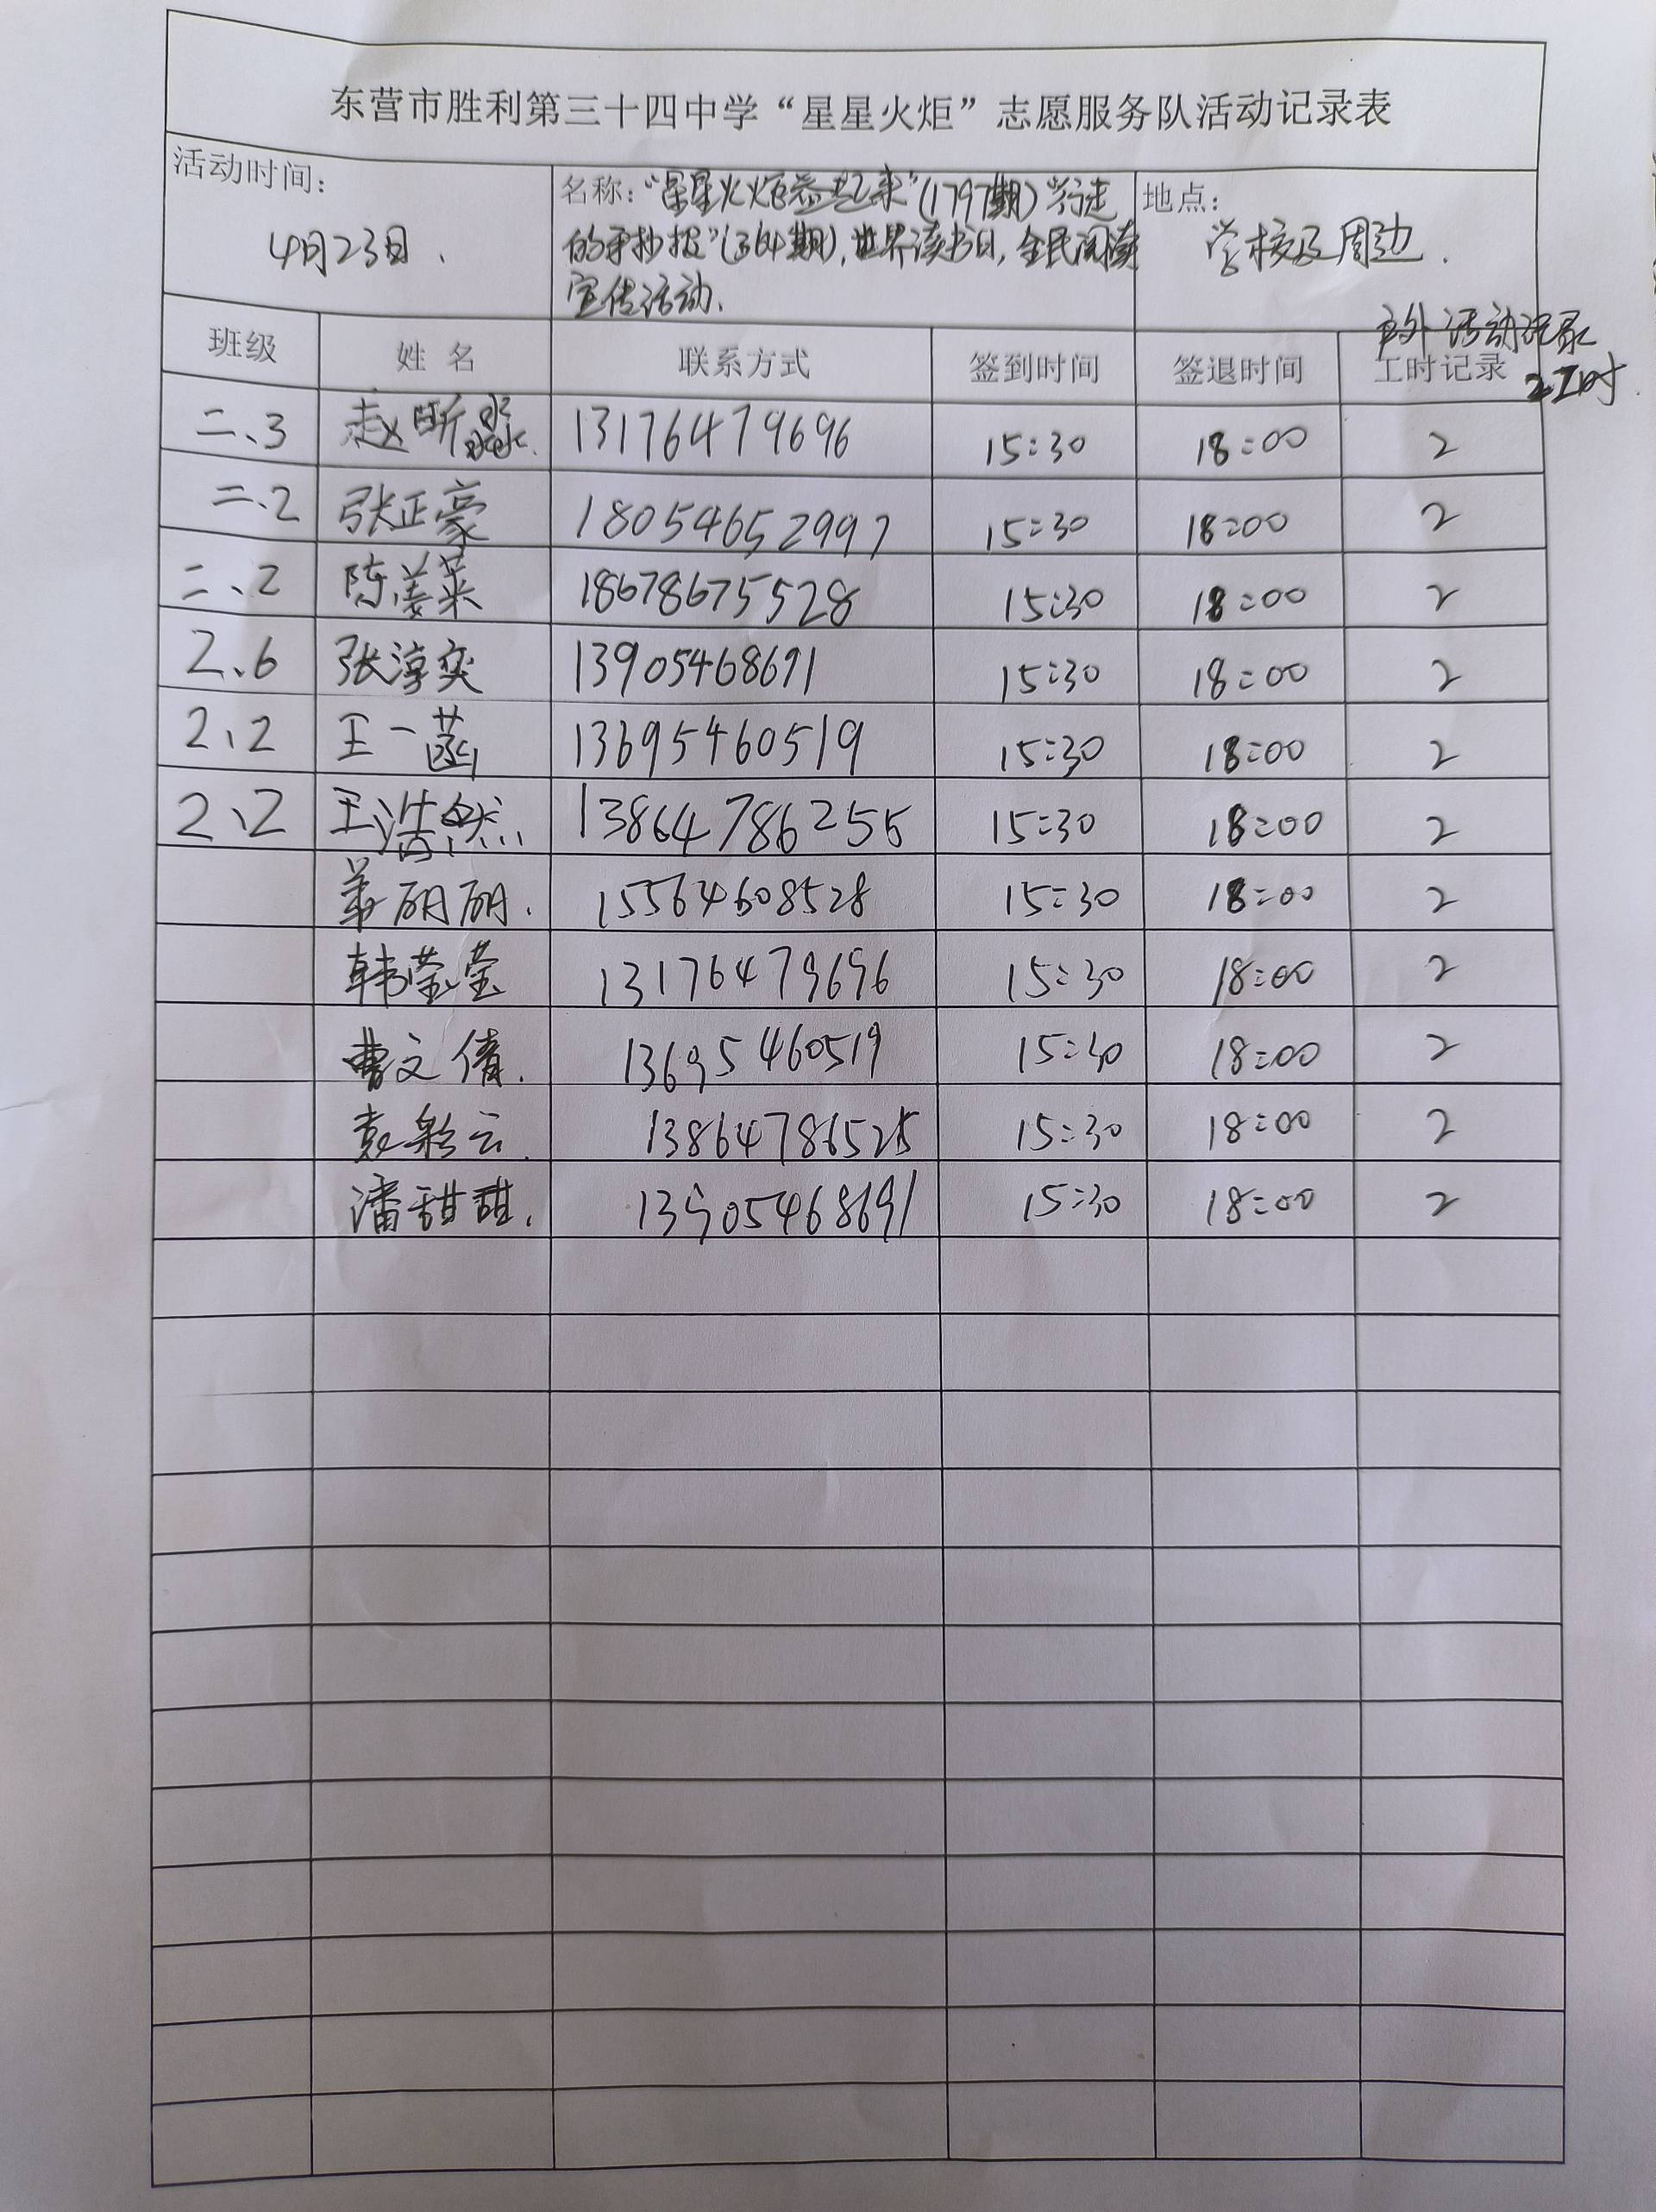 东营市胜利第三十四中学“星星火炬”志愿服务队活动记录表
活动时间: 名称:“星星火炬燃起来”(1797期)“行走 地点:
4月23日. 的手抄报”(364期),世界读书日,全民阅读 学校及周边.
宣传活动.
户外活动记录
2工时.
班级 姓名 联系方式 签到时间 签退时间 工时记录
二、3 赵昕淼. 13176479696 15:30 18:00 2
二、2 张正豪 18054652997 15:30 18:00 2
二、2 陈姜莱 18678675528 15:30 18:00 2
2、6 张淳奕 13905468691 15:30 18:00 2
2、2 王一菡 13695460519 15:30 18:00 2
2、2 王浩然 13864786255 15:30 18:00 2
丽丽. 15564608528 15:30 18:00 2
韩莹莹 13176479696 15:30 18:00 2
曹文倩. 13695460519 15:30 18:00 2
袁彩云. 13864786525 15:30 18:00 2
潘甜甜. 13905468691 15:30 18:00 2